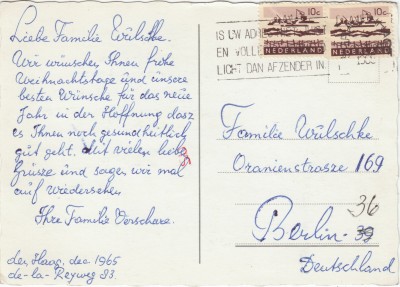 Liebe Familie Wülschke.
Wir wünschen Ihnen frohe
Weihnachtstage und unsere
besten Wünsche für das neue
Jahr in der Hoffnung dasz
es Ihnen noch gesundheitlich
gut geht. Mit vielen liebe
grüsze und sagen wir mal
auf Wiedersehen
Ihre Familie Verschare.
den Haag, dec 1965
de-la-Reyweg 83.
10c
NEDERLAND
10c
NEDERLAND
IS UW ADRE
EN VOLLE
LICHT DAN AFZENDER IN
Familie Wülschke
Oranienstrasze 169
36
Berlin - 39
Deutschland